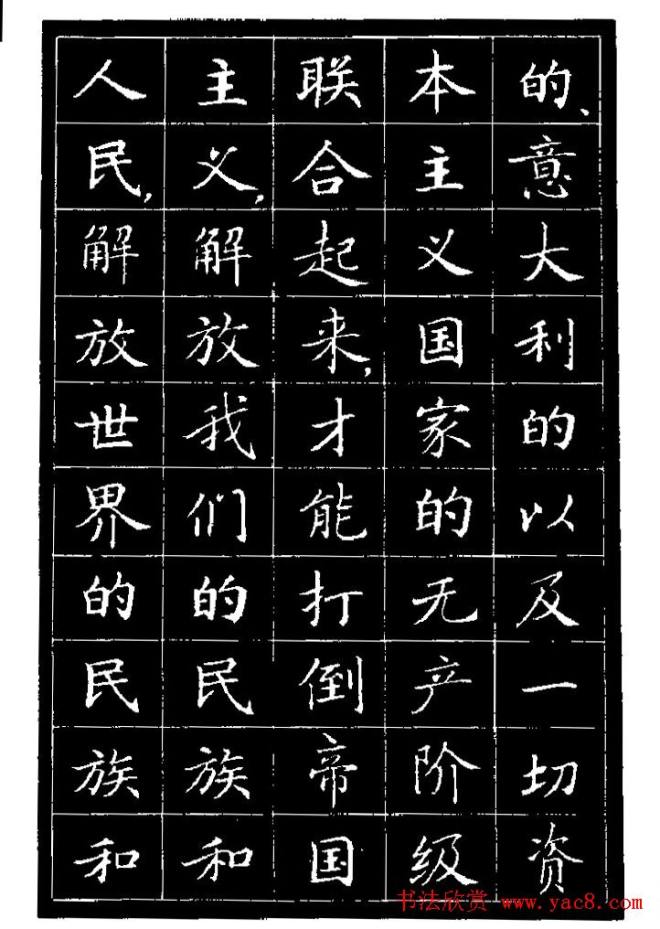 的、意大利的以及一切资
本主义国家的无产阶级
联合起来,才能打倒帝国
主义,解放我们的民族和
人民,解放世界的民族和
书法欣赏 www.yac8.com